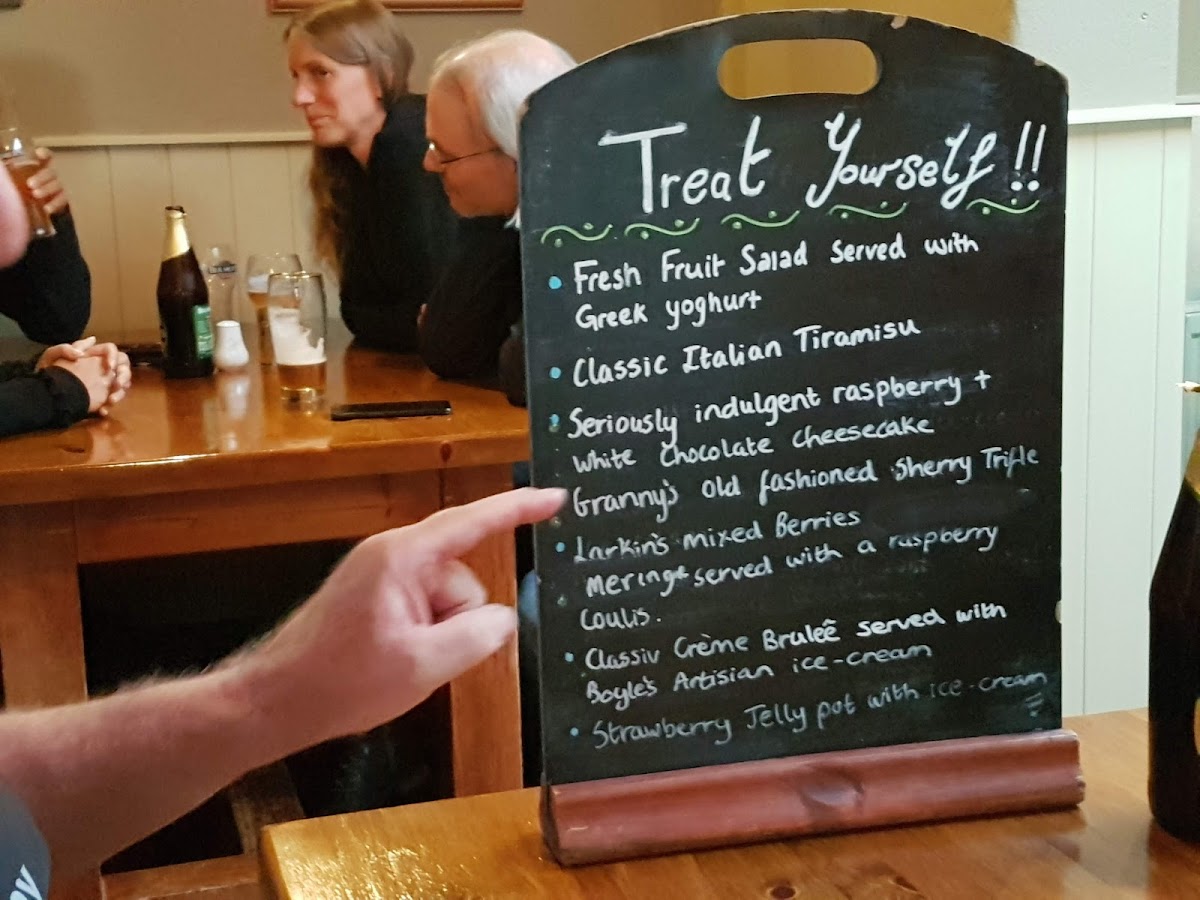 Treat Yourself!!
• Fresh Fruit Salad served with
Greek yoghurt
• Classic Italian Tiramisu
• Seriously indulgent raspberry +
White Chocolate cheesecake
Granny's old fashioned Sherry Trifle
• Larkin's mixed Berries
served with a raspberry
Coulis.
• Classiv Crème Bruleê served with
Boyle's Artisian ice-cream
• Strawberry Jelly pot with ice-cream